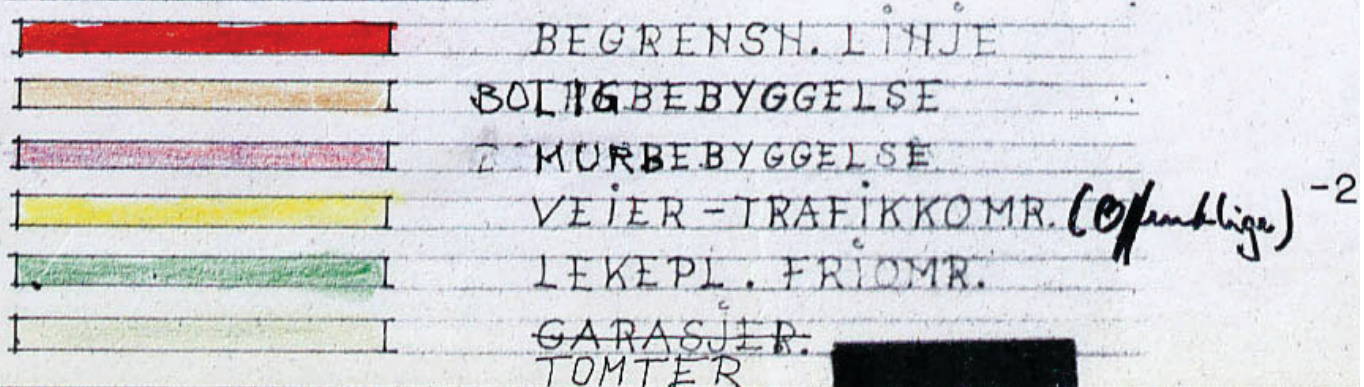 BEGRENSN. LINJE
BOLIGBEBYGGELSE
MURBEBYGGELSE
VEIER-TRAFIKKOMR. (Offentlige) -2
LEKEPL. FRIOMR.
GARASJER.
TOMTER